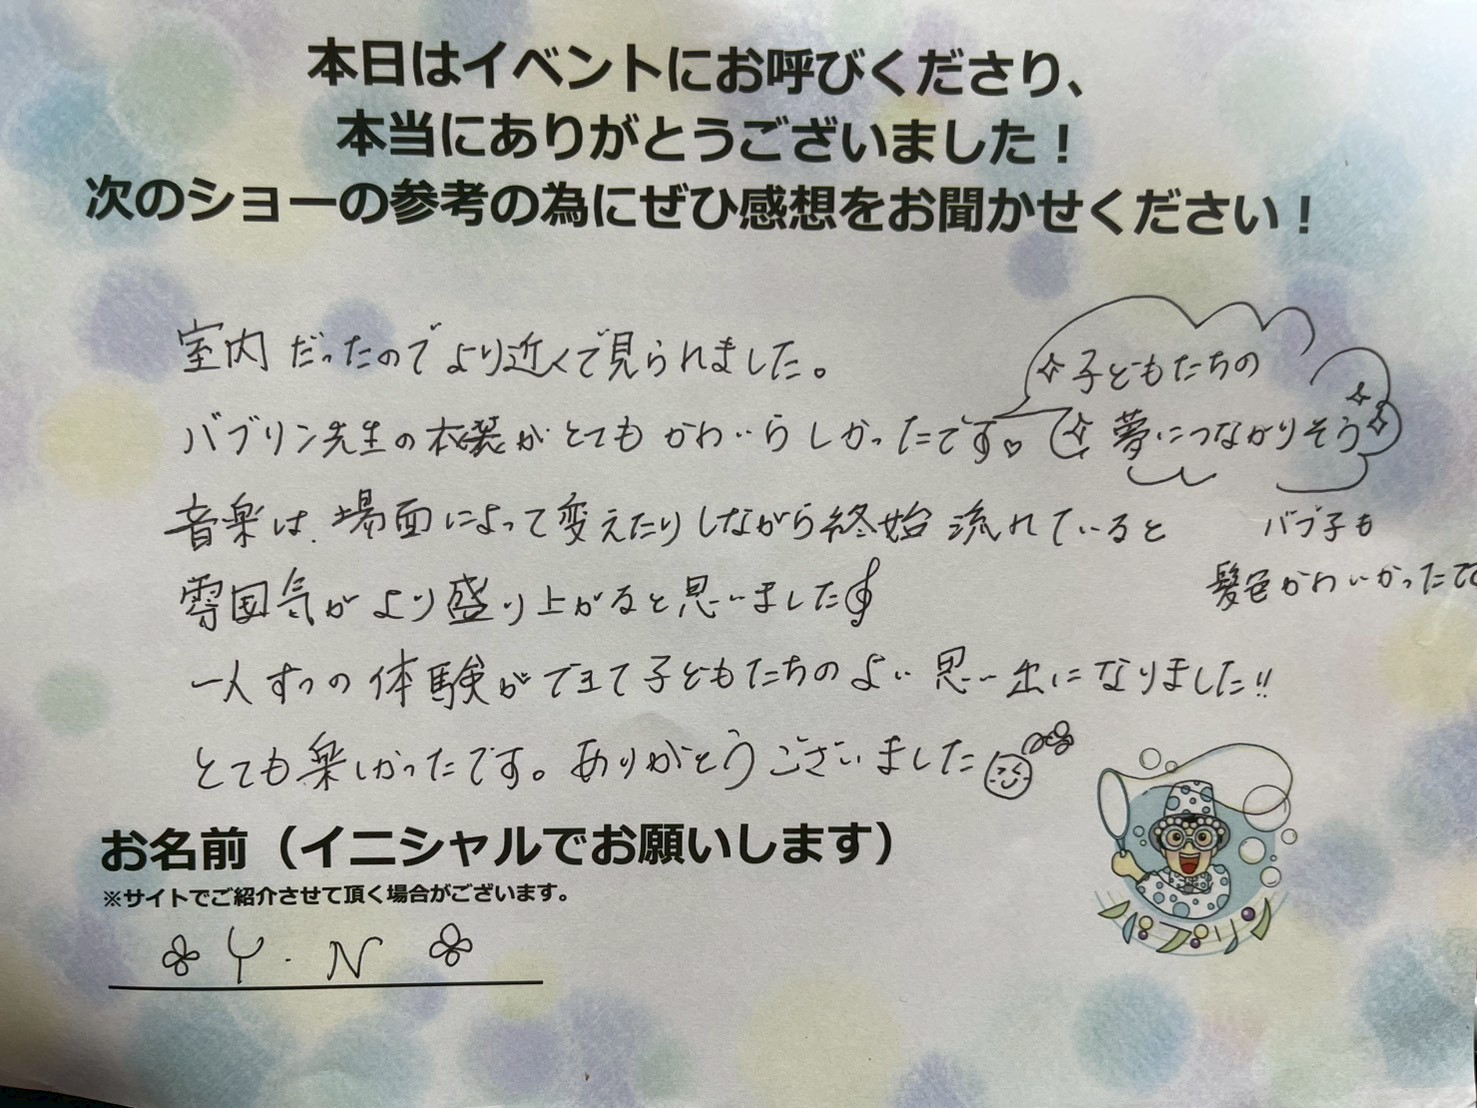 本日はイベントにお呼びくださり、
本当にありがとうございました！
次のショーの参考の為にぜひ感想をお聞かせください！
室内だったのでより近くで見られました。
バブリン先生の衣装がとてもかわいらしかったです♡
子どもたちの
夢につながりそう
音楽は、場面によって変えたりしながら終始流れていると
バブ子も
髪色かわいかったです
雰囲気がより盛り上がると思いました
一人ずつの体験ができて子どもたちのよい思い出になりました!!
とても楽しかったです。ありがとうございました
お名前（イニシャルでお願いします）
※サイトでご紹介させて頂く場合がございます。
Y.N